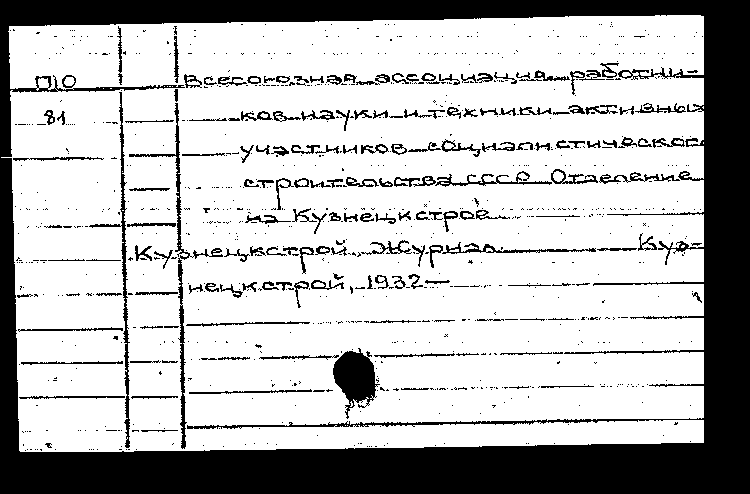 П10 Всесоюзная ассоциация работни-
81 ков науки и техники активных
участников социалистического
строительства СССР Отделение
на Кузнецкстрое
Кузнецкстрой. Журнал. Куз-
нецкстрой, 1932—